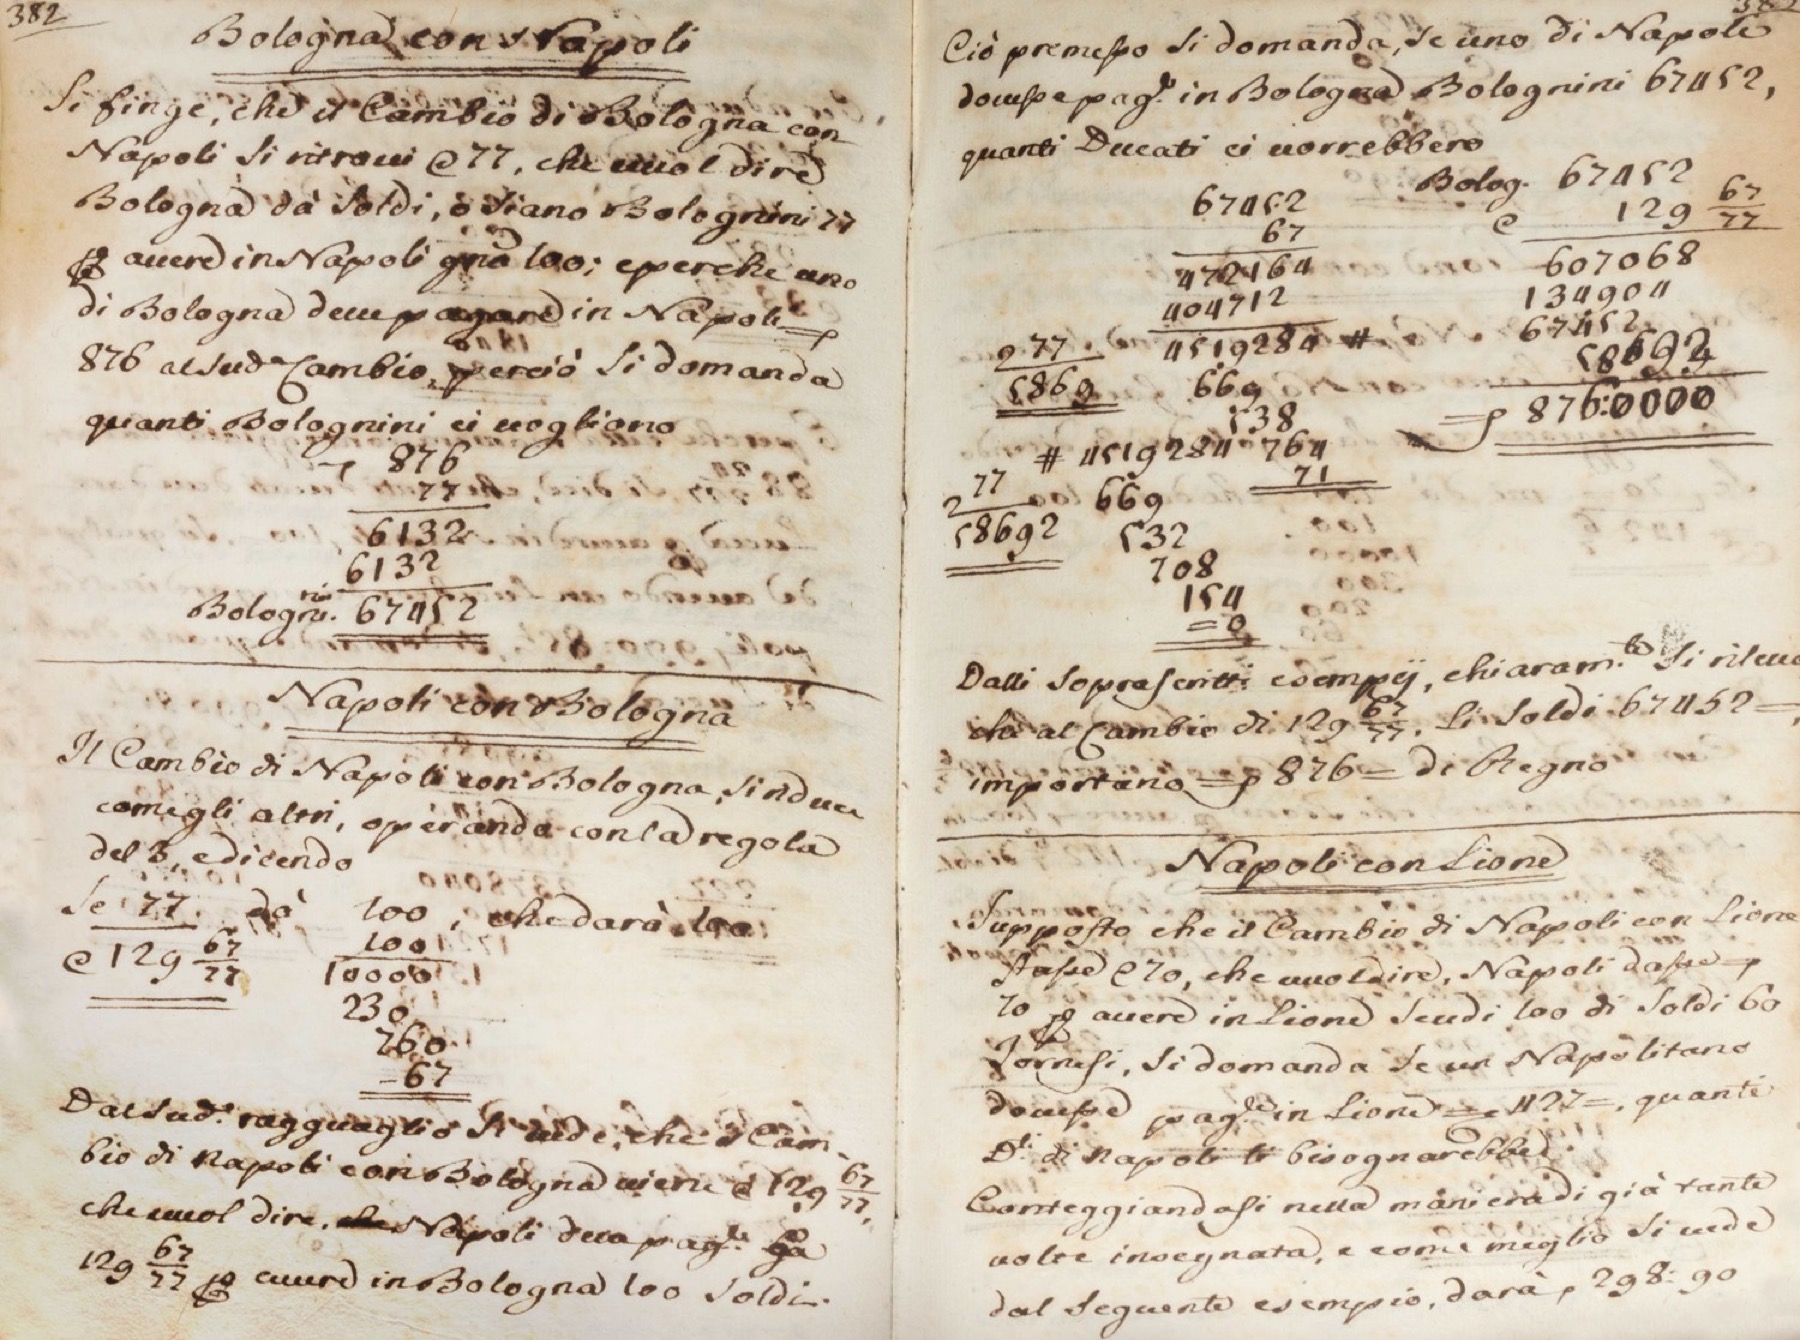 382
Bologna con Napoli
Si finge, che il Cambio di Bologna con
Napoli si ritroui @ 77, che uuol dire
Bologna dà Soldi, ò siano Bolognini 77
auere in Napoli gna 100; e perche uno
di Bologna deue pagare in Napoli
876 al sud.º Cambio, perciò si domanda
quanti Bolognini ci uogliono
876
77
6132
6132
Bologni.ni 67452
Napoli con Bologna
Il Cambio di Napoli con Bologna, s'induce
come gli altri, operando con la regola
del 3, e dicendo
Se 77 dà 100, che darà 100
100
@ 129 67/77 10000
230
760
-67
Dal sud.º ragguaglio si uede, che il Cam-
bio di Napoli con Bologna uiene @ 129 67/77,
che uuol dire, Napoli deua pag.re gna
129 67/77 auere in Bologna 100 Soldi.
Ciò premesso si domanda, se uno di Napoli
douesse pag.re in Bologna Bolognini 67452,
quanti Ducati ci uorrebbero
Bolog. 67452
@ 129 67/77
607068
134904
67452
58692
876:0000
67452
67
472164
404712
2 77 4519284 #
5869 669
538
764
71
# 4519284
2 77 669
58692 532
708
154
= 0
Dalli soprascritti esempij, chiaram.te si rileua
che al Cambio di 129 67/77, li Soldi 67452 =,
importano 876 = di Regno
Napoli con Lione
Supposto che il Cambio di Napoli con Lione
stasse @ 70, che uuol dire, Napoli dasse
70 auere in Lione Scudi 100 di Soldi 60
Tornesi, si domanda se un Napolitano
douesse pag.re in Lione 427 =, quanti
D.ti di Napoli li bisognarebbe
Conteggiandosi nella maniera di già tante
uolte insegnata, e come meglio si uede
dal seguente esempio, darà 298:90